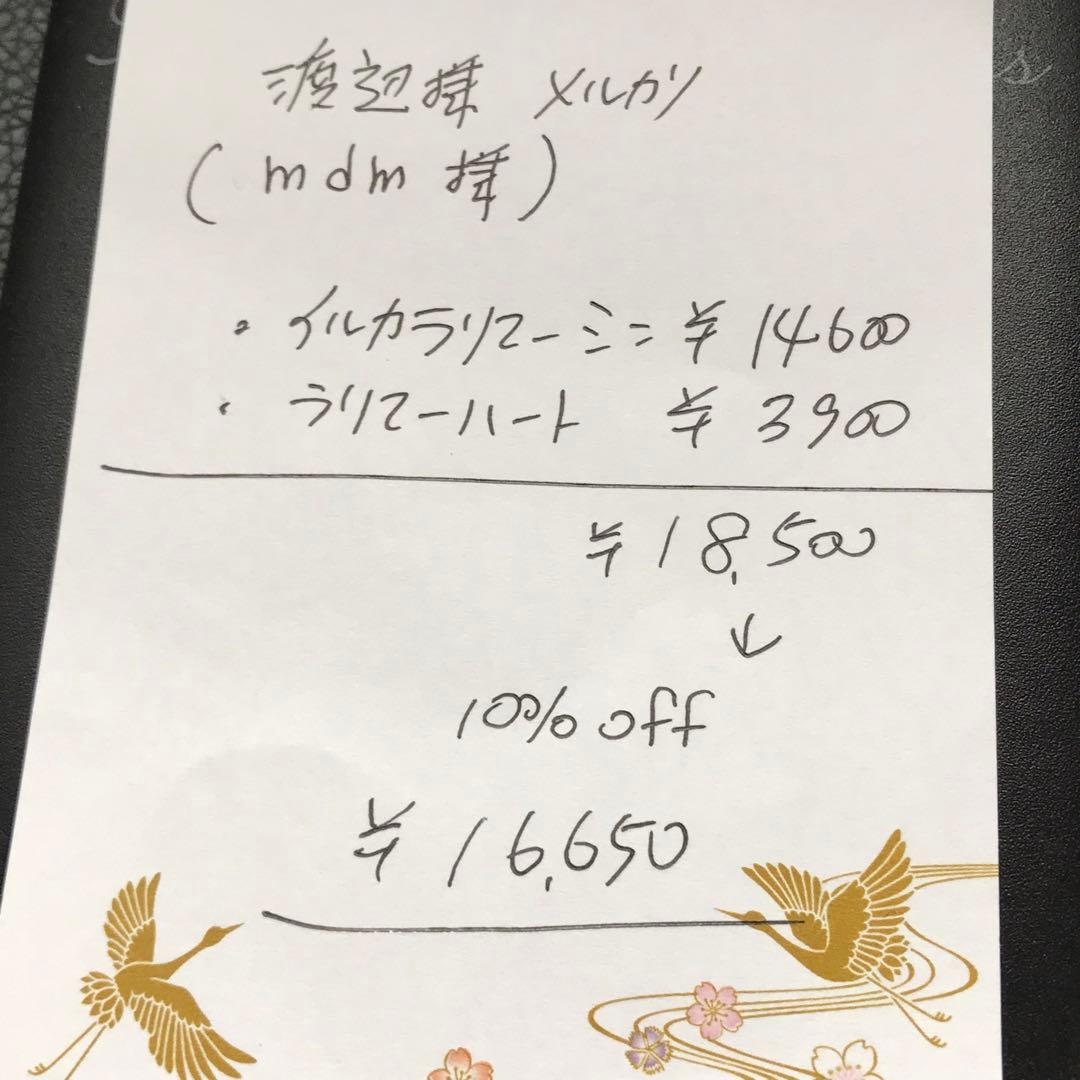 渡辺様 メルカリ
(mdm様)
・イルカラリマーミニ ¥14600
・ラリマーハート ¥3900
¥18,500
↓
10% off
¥16,650